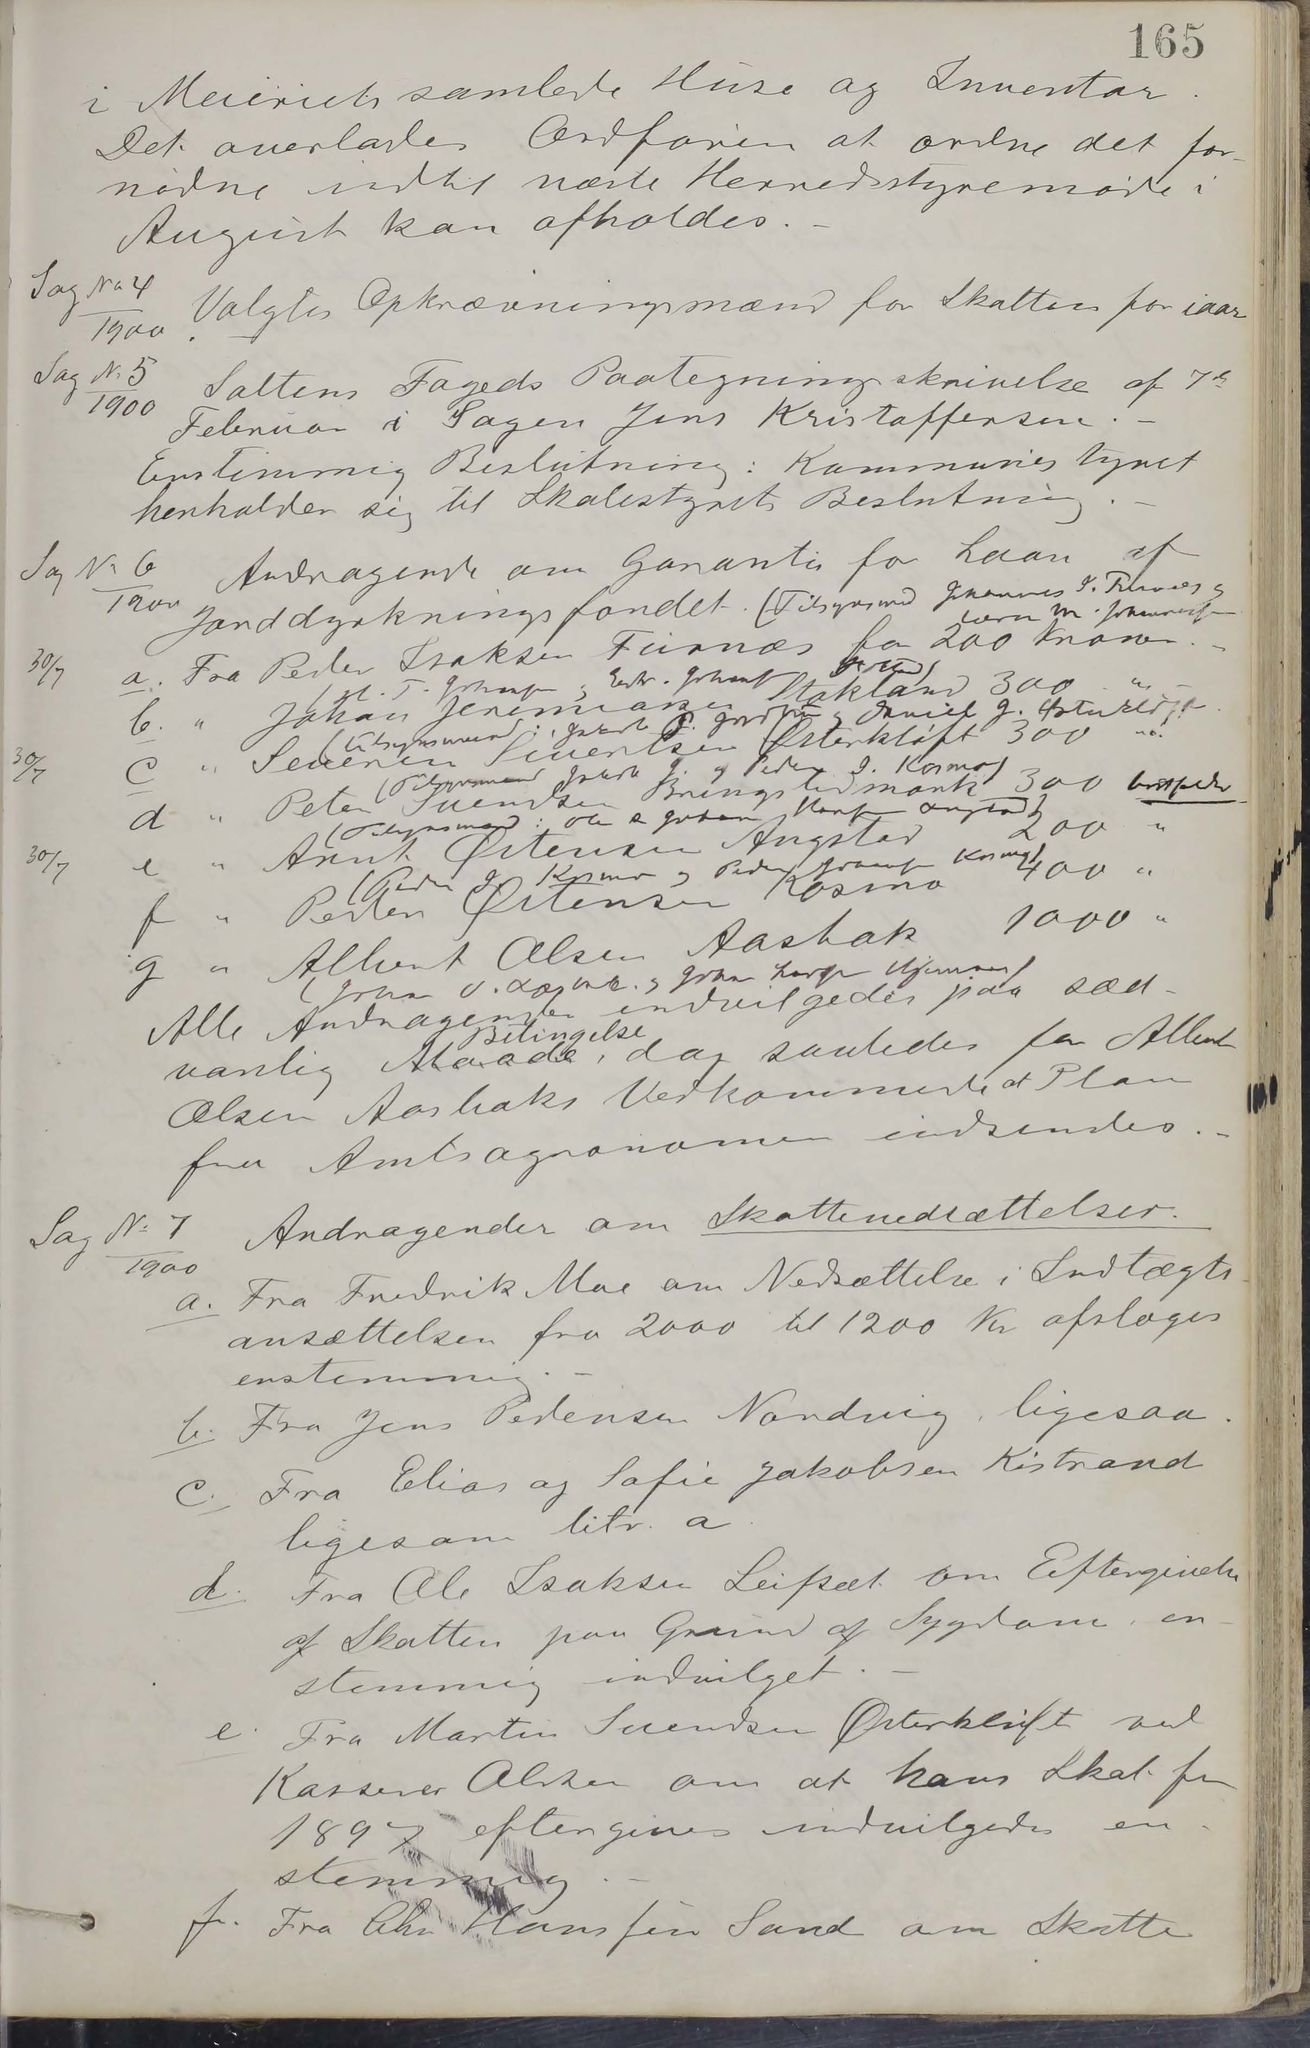 165
i Meieriets samlede Huse og Inventar.
Det overlades Ordføren at ordne det for-
nødne indtil næste Herredsstyremøde i
August kan afholdes. -
Sag No 4
1900. Valgtes Opkrævningsmænd for Skatten for iaar
Sag No 5
1900 Saltens Fogeds Paategningsskrivelse af 7de
Februar i Sagen Jens Kristoffersen. -
Enstemmig Beslutning: Kommunestyret
henholder sig til Skolestyrets Beslutning. -
Sag No 6
1900 Andragende om Garanti for Laan af
Jorddyrkningsfondet. (Tilsynsmænd Johannes J. Furnes og
30/7 a. Fra Peder Isaksen Furnæs for 200 Kroner. -
b. " Johan Jeremiasen Stokland 300 " -
(Tilsynsmænd: Jakob
30/7 c " Severin Sivertsen Østerkløft 300 "
(Tilsynsmænd Jakob J. og Peder J. Kosmo)
d " Peter Svendsen Bringslimark 300 bortfalder
(Tilsynsmænd: Ole
30/7 e " Arnt Østensen Angstad 200 "
(Peder J. Kosmo og Peder Johansen Kosmo)
f " Peder Østensen Kosmo 400 "
g " Albert Olsen Aasbak 1000 "
Alle Andragender indvilgedes paa sæd-
Betingelse
vanlig Maade, dog saaledes for Albert
Olsen Aasbaks Vedkommende at Plan
fra Amtsagronomen indsendes. -
Sag No 7
1900 Andragender om Skattenedsættelser.
a. Fra Fredrik Moe om Nedsættelse i Indtægts
ansættelsen fra 2000 til 1200 Kr afsloges
enstemmig. -
b. Fra Jens Pedersen Nordvig, ligesaa.
c. Fra Elias og Sofie Jakobsen Kistrand
ligesom litr. a.
d. Fra Ole Isaksen Leifset om Eftergivelse
af Skatten paa Grund af Sygdom, en-
stemmig indvilget. -
e. Fra Martin Svendsen Østerkløft ved
Kasserer Olsen om at hans Skat for
1897 eftergives indvilgedes en-
stemmig. -
f. Fra Chr Hansen Sand om Skatte